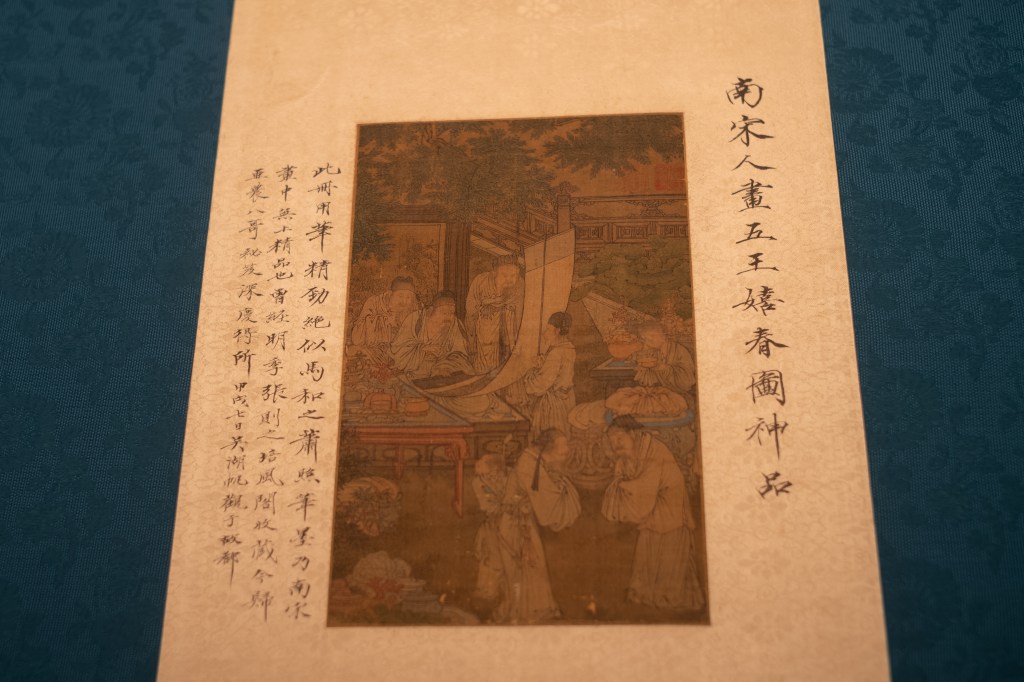 南宋人畫五王嬉春圖神品
此冊用筆精勁絕似馬和之蕭照筆墨乃南宋
畫中無上精品也曾經明季張則之培風閣收藏今歸
亞農八哥秘笈深慶得所甲戌七日吳湖帆觀于故都